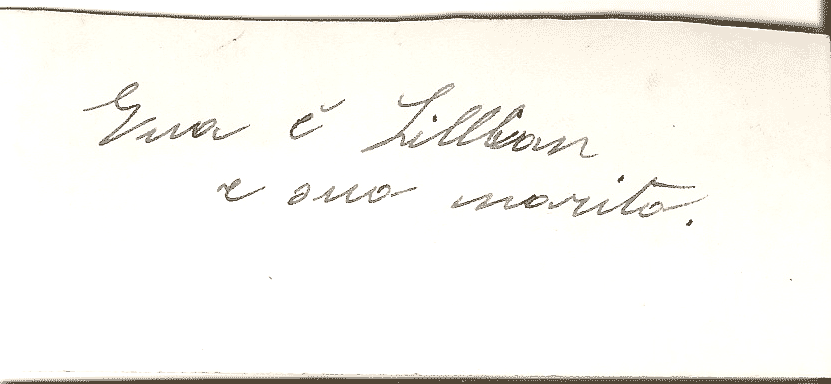 Eva e Lillban
e suo marito.